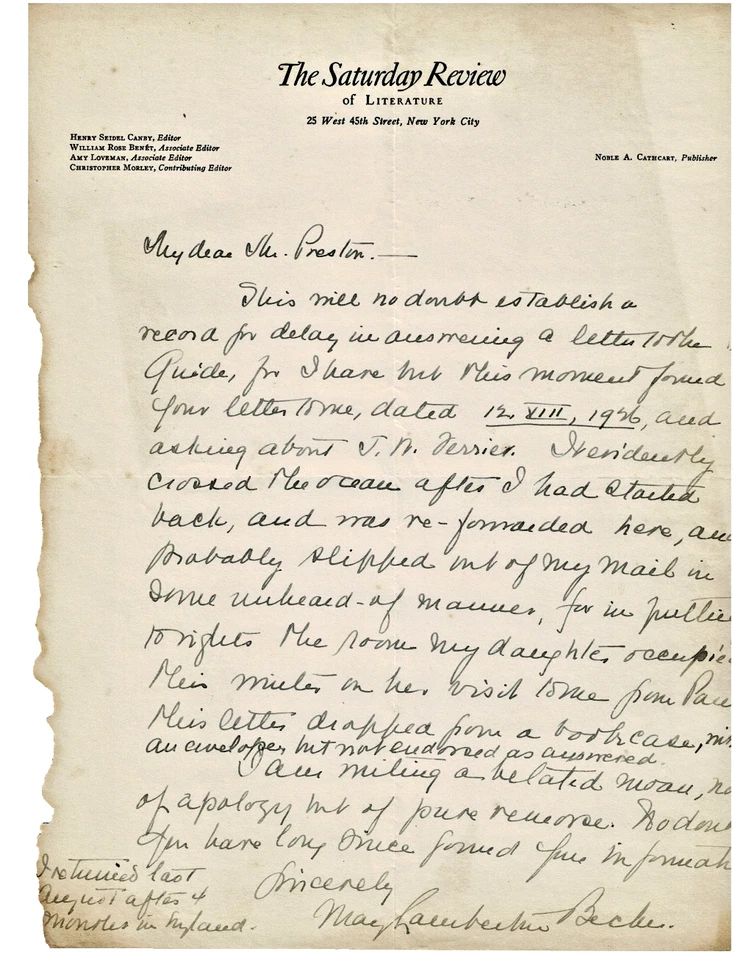 The Saturday Review
of LITERATURE
25 West 45th Street, New York City
HENRY SEIDEL CANBY, Editor
WILLIAM ROSE BENÉT, Associate Editor
AMY LOVEMAN, Associate Editor
CHRISTOPHER MORLEY, Contributing Editor
NOBLE A. CATHCART, Publisher
My dear Mr. Preston.—
This will no doubt establish a
record for delay in answering a letter to the
Guide, for I have but this moment found
your letter to me, dated 12, XIII, 1926, and
asking about J. W. It evidently
crossed the ocean after I had started
back, and was re-forwarded here, an
probably slipped out of my mail in
some unheard-of manner, for in puttin
to rights the room my daughter occupie
this winter on her visit to me from Par
this letter dropped from a bookcase,
an envelope, but not endorsed as answered.
I am writing a belated moan, no
of apology but of pure remorse. No dou
you have long since found your informat
Sincerely
May Lamberton Becker.
I returned last
August after 4
months in England.